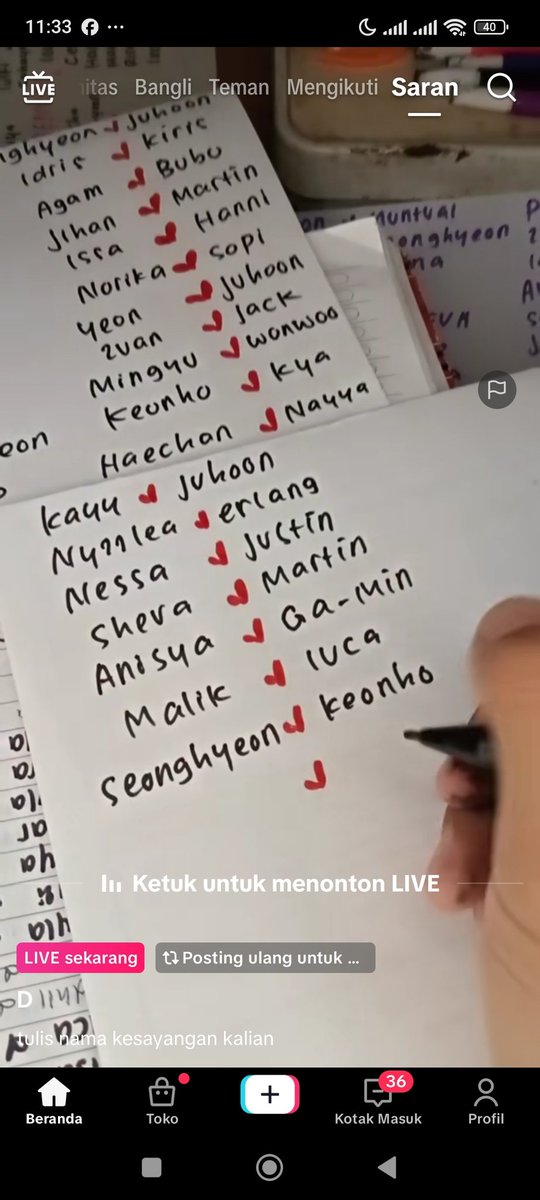 11:33
40
LIVE
nitas Bangli Teman Mengikuti Saran
nghyeon Juhoon
Idris Kiris
Agam Bubu
Jihan Martin
Issa Hanni
Norika Sopi
Yeon Juhoon
Zuan Jack
Mingyu Wonwoo
Keonho Kya
Haechan Nayya
eon
muntual
onghyeon
Kayu Juhoon
erlang
Nessa Justin
Sheva Martin
Anisya Ga-Min
Malik luca
Seonghyeon Keonho
Ketuk untuk menonton LIVE
LIVE sekarang Posting ulang untuk ...
D
tulis nama kesayangan kalian
Beranda Toko Kotak Masuk 36 Profil